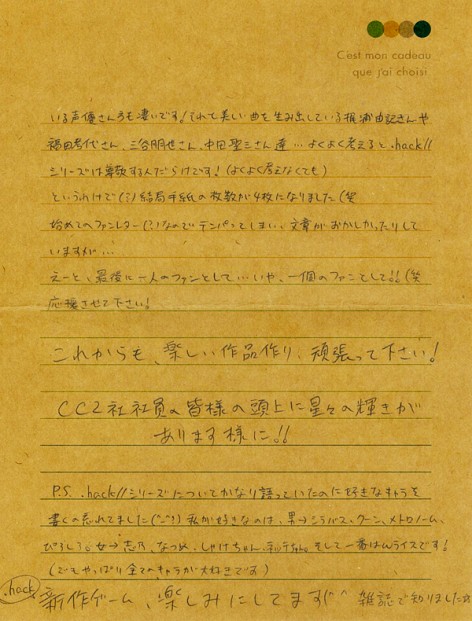 C'est mon cadeau
que j'ai choisi.
いる声優さん方も凄いです!それで美しい曲を生み出している梶浦由記さんや
福田考代さん、三谷朋世さん、中田聖二さん達…よくよく考えると、.hack//
シリーズは尊敬する人だらけです!(よくよく考えなくても)
というわけで(?)結局手紙の枚数が4枚になりました(笑
始めてのファンレター(?)なのでテンパってしまい、文章がおかしかったりして
いますが…
えーと、最後に一人のファンとして…いや、一個のファンとして!!(笑
応援させて下さい!
これからも、楽しい作品作り、頑張って下さい!
CC2社社員の皆様の頭上に星々の輝きが
あります様に!!
P.S. .hack//シリーズについてかなり語っていたのに好きなキャラを
書くの忘れてました 私が好きなのは、男→シラバス、クーン、メトロノーム、
ぴろし3。女→志乃、なつめ、しゃけちゃん、そして一番はんライスです!
(でもやっぱり全てのキャラが大好きです)
.hack 新作ゲーム、楽しみにしてます(^^ 雑誌で知りました☆